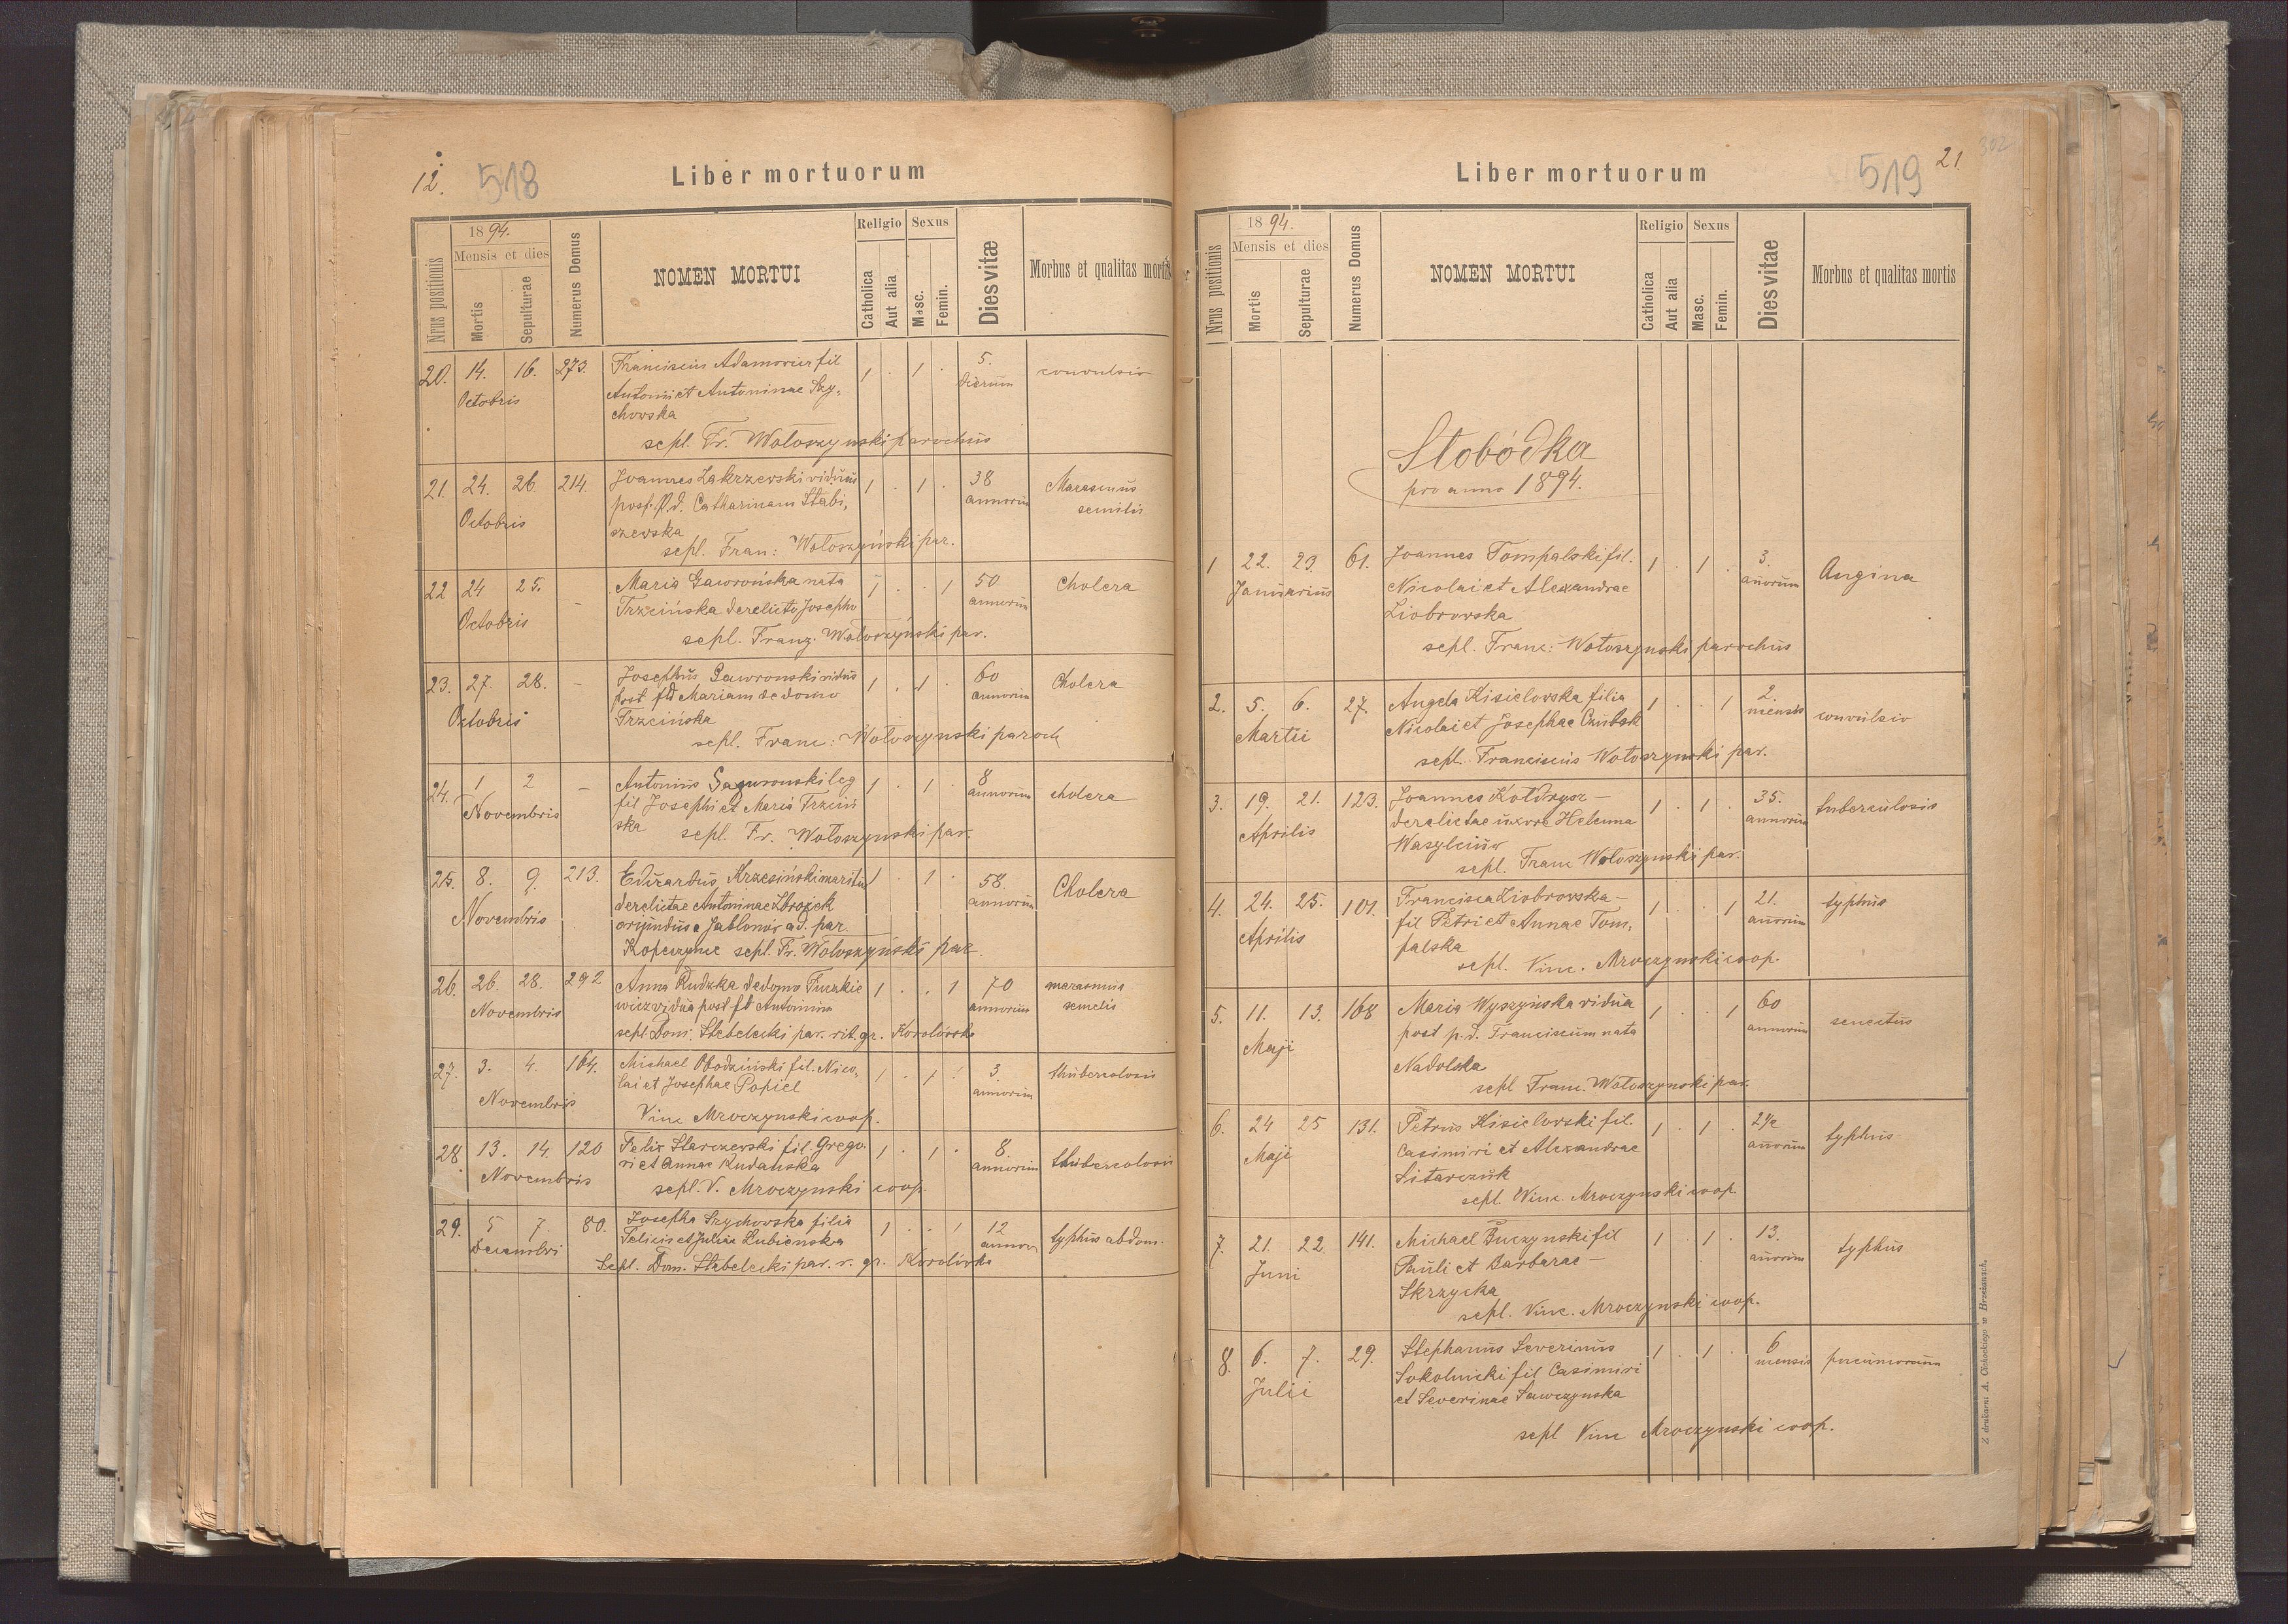 12.
518
Liber mortuorum
Nrus positionis
1894.
Mensis et dies
Mortis
Sepulturae
Numerus Domus
NOMEN MORTUI
Religio
Catholica
Aut alia
Sexus
Masc.
Femin.
Dies vitæ
Morbus et qualitas mortis
20. 14. 16. 273. Franciscus Adamowicz fil 1 . 1 . 5. convulsio
Octobris Antonii et Antoninae Szy- dierum
chowska
sepl. Fr. Wołoszynski parochus
21. 24. 26. 214. Joannes Zakrzewski viduus 1 . 1 . 38 Marasmus
Octobris post. p.d. Catharinam Stabi- annorum senilis
szewska
sepl. Fran: Wołoszyński par.
22 24 25. - Maria Gaworońska nata 1 . . 1 50 Cholera
Octobris Trzcińska derelicto Josepho annorum
sepl. Franz. Wołoszyński par.
23. 27. 28. - Josephus Gawronski viduus 1 . 1 . 60 Cholera
Octobris post pd Mariam de domo annorum
Trzcińska
sepl. Franc: Wołoszynski paroch
24. 1 2 - Antonius Gagwronski leg 1 . 1 . 8 cholera
Novembris fil Josephi et Maria Trzciń annorum
ska sepl. Fr. Wołoszynski par.
25. 8. 9. 213. Eduardus Krzesiński maritus 1 . 1 . 58. Cholera
Novembris derelictae Antoninae Zbrożek annorum
oriundus e Jablonów ad. par.
Kopeczynce sepl. Fr. Wołoszyński par.
26. 26. 28. 292 Anna Rudzka de domo Turzkie 1 . . 1 70 marasmus
Novembris wicz vidua post pd Antonium annorum semelis
sepl. Dom. Stebelecki par. rit. gr. Korolówka
27. 3. 4. 164. Michael Obodziński fil. Nico- 1 . 1 . 3. thuberculosis
Novembris lai et Josephae Popiel annorum
Vinc Mroczynski coop.
28. 13. 14. 120 Felix Starczewski fil. Grego- 1 . 1 . 8. thuberculosis
Novembris ri et Annae Rudańska annorum
sepl. V. Mroczynski coop.
29. 5 7. 80. Josepha Szychowska filia 1 . . 1 12 typhus abdom.
Decembri Felicis et Juliae Lubienska annor
Sepl. Dom. Stabelecki par. r. gr. Korolówka
Liber mortuorum
519
21.
302
Nrus positionis
1894.
Mensis et dies
Mortis
Sepulturae
Numerus Domus
NOMEN MORTUI
Religio
Catholica
Aut alia
Sexus
Masc.
Femin.
Dies vitae
Morbus et qualitas mortis
Słobódka
pro anno 1894.
1 22. 23. 61. Joannes Tompalski fil. 1 . 1 . 3. Angina
Januarius Nicolai et Alexandrae añorum
Ziobrowska
sepl. Franc: Wołoszynski parochus
2. 5. 6. 27. Angela Kisielowska filia 1 . . 1 2. convulsio
Martii Nicolai et Josephae mensis
sepl. Franciscus Wołoszynski par.
3. 19. 21. 123. Joannes Kołdrysz - 1 . 1 . 35. tuberculosis
Aprilis derelictae uxore Helenna annorum
Wasylciów
sepl. Franc Wołoszynski par.
4. 24. 25. 101. Francisca Ziobrowska - 1 . . 1 21. typhus
Aprilis fil Petri et Annae Tom- annorum
palska
sepl. Vinc. Mroczynski coop.
5. 11. 13. 168 Maria Wyszyńska vidua 1 . . 1 60 senectus
Maji post p.d. Franciscum nata annorum
Nadolska
sepl Franc. Wołoszynski par.
6. 24 25 131. Petrus Kisielowski fil. 1 . 1 . 2½ typhus
Maji Casimiri et Alexandrae añorum
Sitarczuk
sepl. Winc. Mroczynski coop.
7. 21. 22. 141. Michael Buczynski fil 1 1 . 13. typhus
Juni Pauli et Barbarae - añorum
Skrzycka
sepl. Vinc. Mroczynski coop.
8. 6. 7. 29. Stephanus Severinus 1 . 1 . 6 pneumonium
Julii Sokolnicki fil Casimiri mensis
et Severinae Sawczynska
sepl Vinc Mroczynski coop.
Z drukarni A. Cichockiego w Brzeżanach.